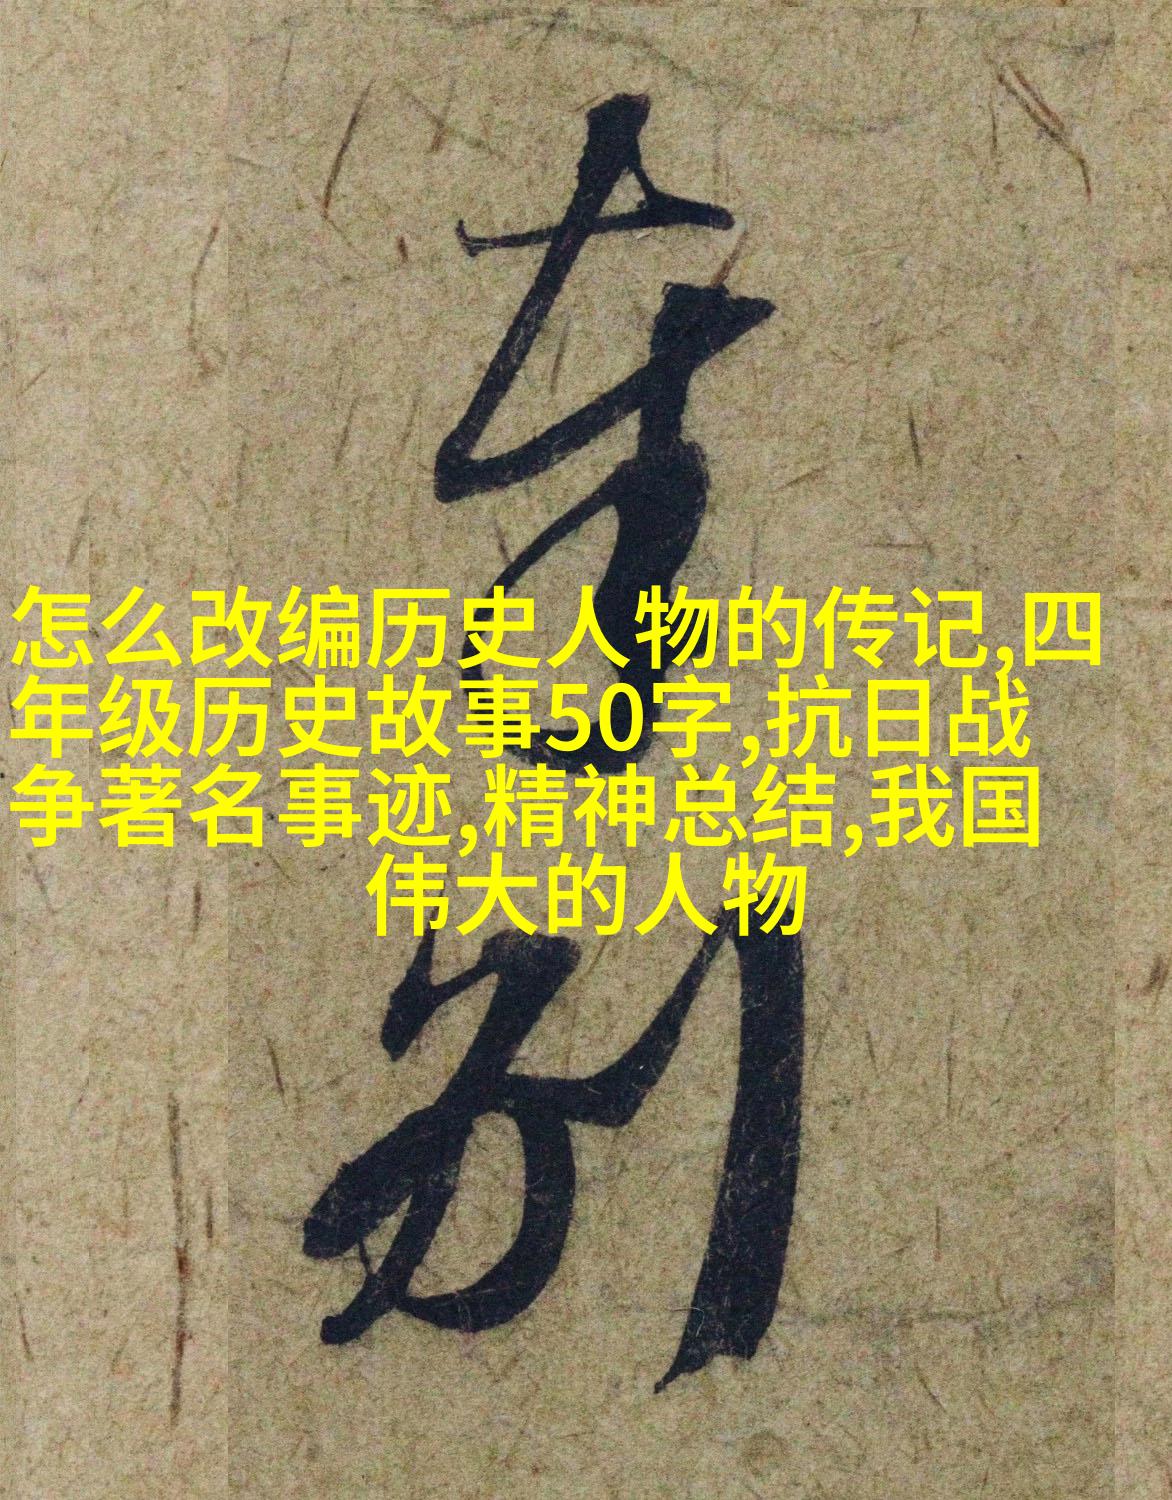 怎么改编历史人物的传记,四
年级历史故事50字,抗日战
争著名事迹,精神总结,我国
伟大的人物